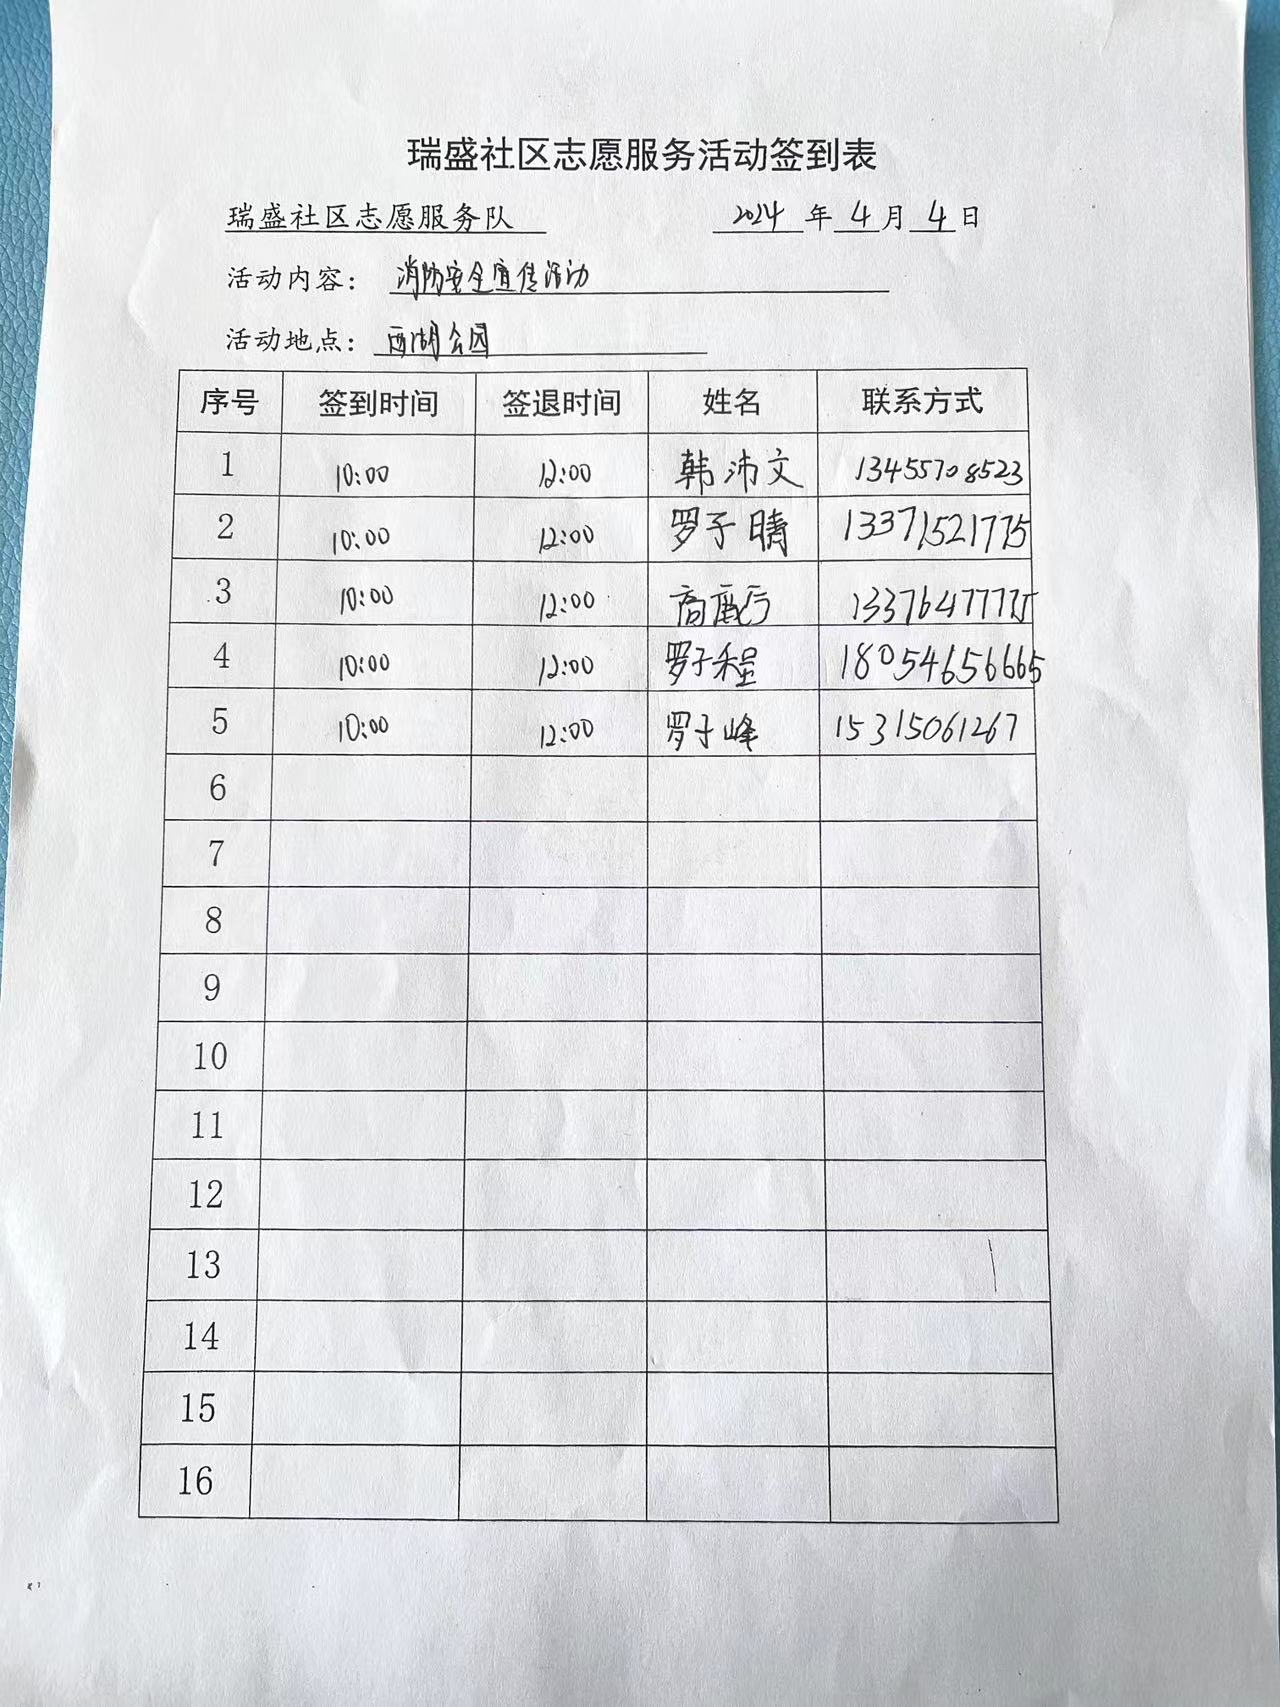 瑞盛社区志愿服务活动签到表
瑞盛社区志愿服务队 2024年4月4日
活动内容：消防安全宣传活动
活动地点：西湖公园
序号 签到时间 签退时间 姓名 联系方式
1 10:00 12:00 韩沛文 13455708523
2 10:00 12:00 罗子晴 13371521775
3 10:00 12:00 高 13376477775
4 10:00 12:00 罗子程 18054656665
5 10:00 12:00 罗子峰 15315061267
6
7
8
9
10
11
12
13
14
15
16